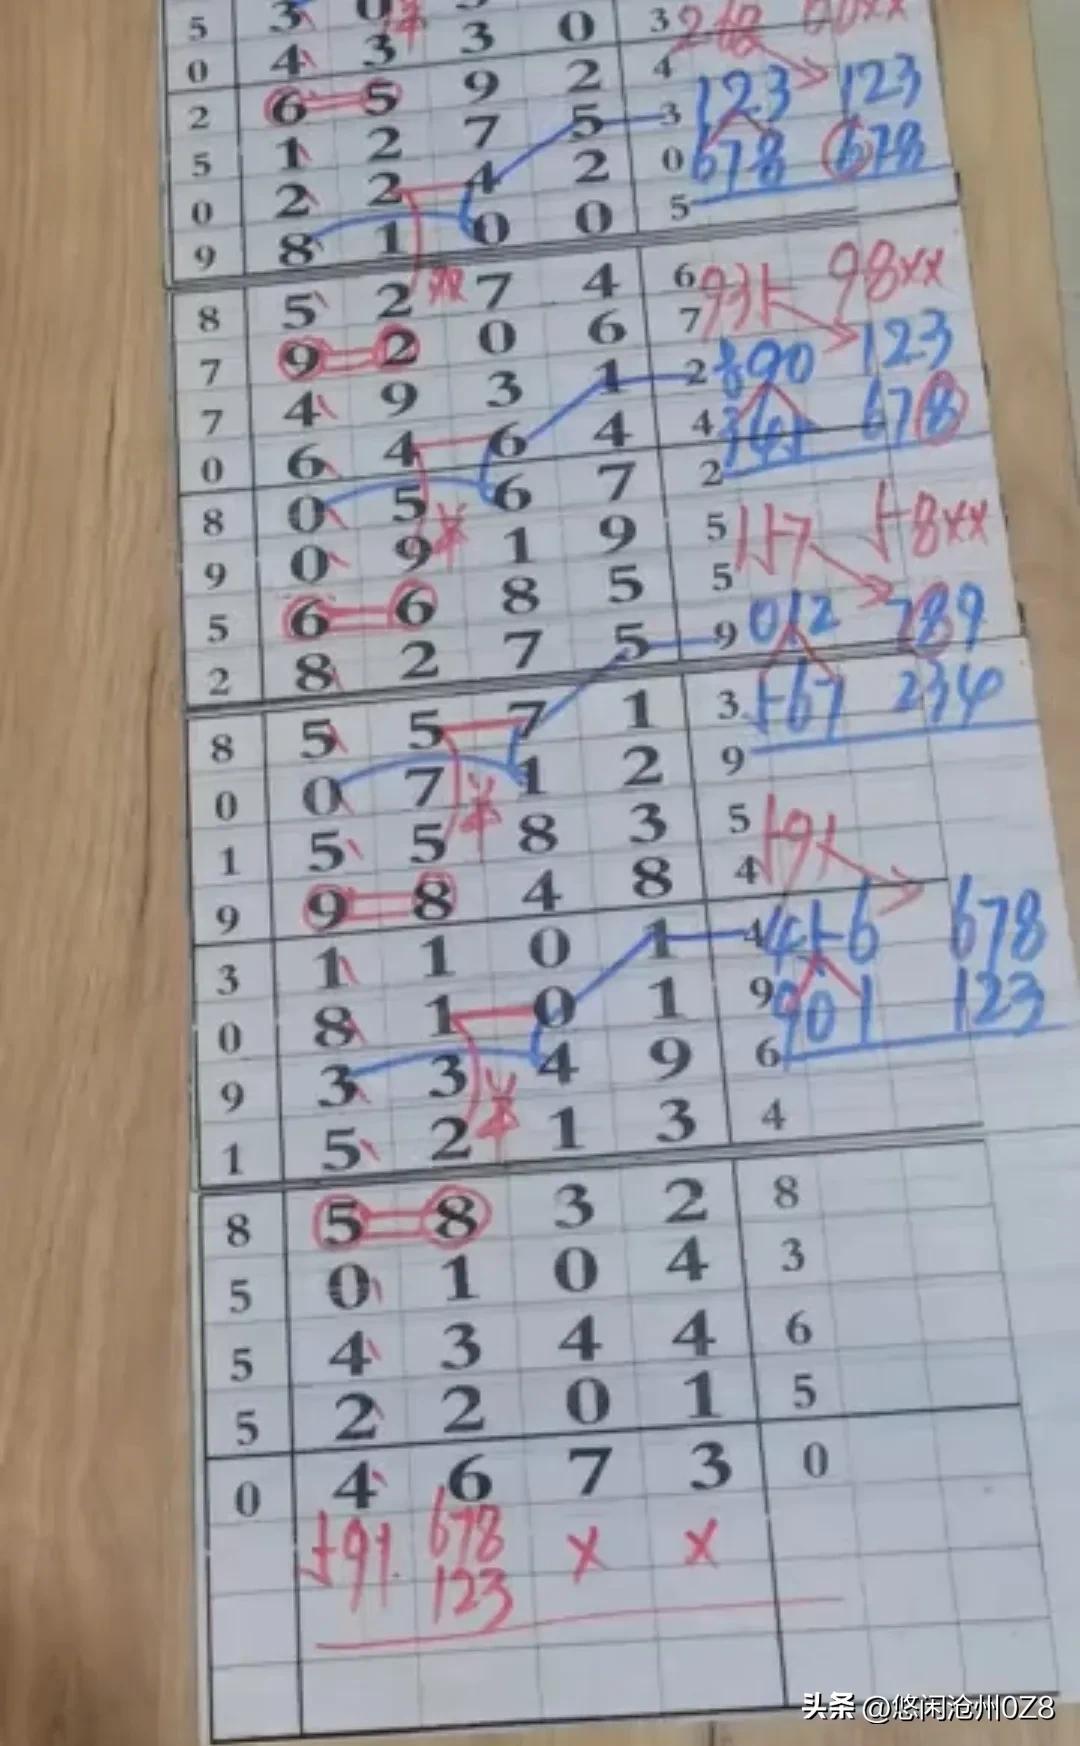 5 3 0 3
0 4 3 3 0 3
2 6 5 9 2 4 123 123
5 1 2 7 5 3 678 678
0 2 2 4 2 0
9 8 1 0 0 5
8 5 2 双 7 4 6 98××
7 9 2 0 6 7 890 123
7 4 9 3 1 2 678
0 6 4 6 4 4
8 0 5 6 7 2
9 0 9 1 9 5
5 6 6 8 5 5 012 789
2 8 2 7 5 9 234
8 5 5 7 1 3
0 0 7 1 2 9
1 5 5 8 3 5
9 9 8 4 8 4 678
3 1 1 0 1 4 901 123
0 8 1 0 1 9
9 3 3 4 9 6
1 5 2 1 3 4
8 5 8 3 2 8
5 0 1 0 4 3
5 4 3 4 4 6
5 2 2 0 1 5
0 4 6 7 3 0
678 × ×
123
头条 @悠闲沧州0Z8